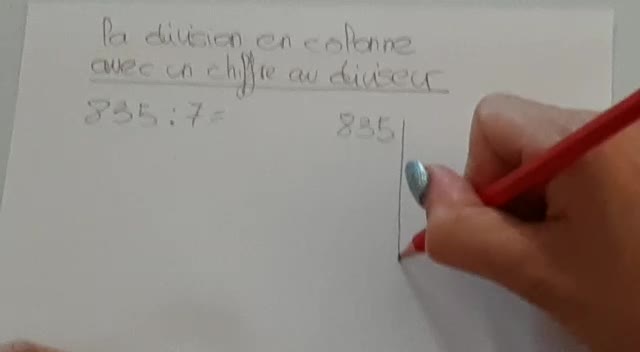 la division en colonne
avec un chiffre au diviseur
835 : 7 = 835